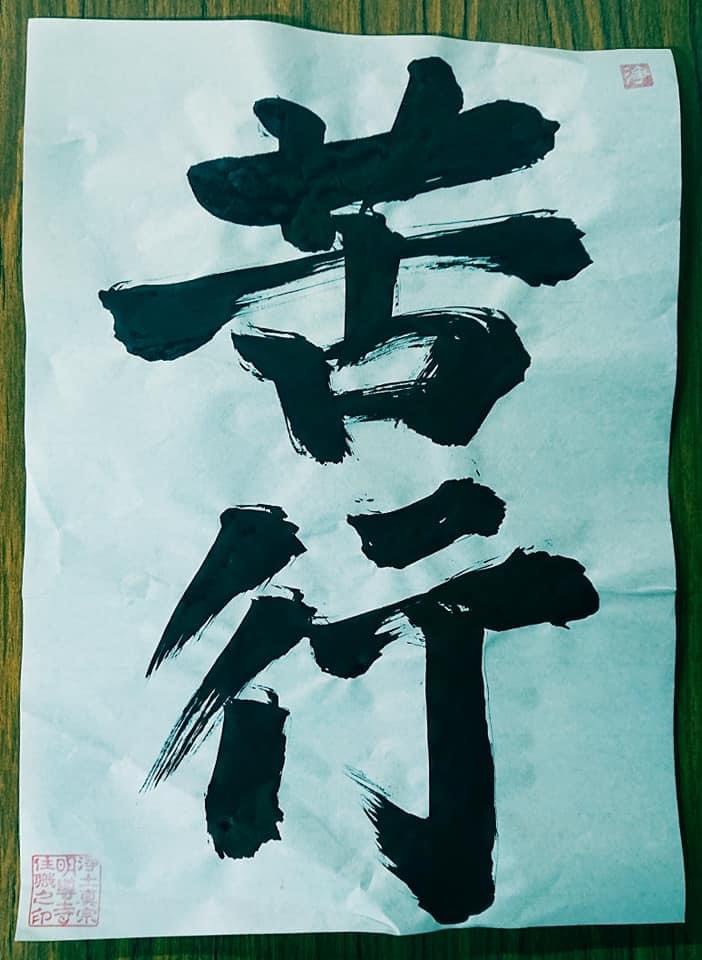 浄
苦行
浄土真宗
明尊寺
住職之印